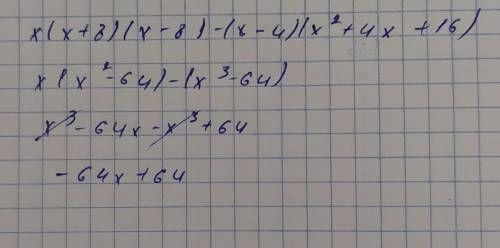 x(x+8)(x-8)-(x-4)(x²+4x+16)
x(x²-64)-(x³-64)
x³-64x-x³+64
-64x+64